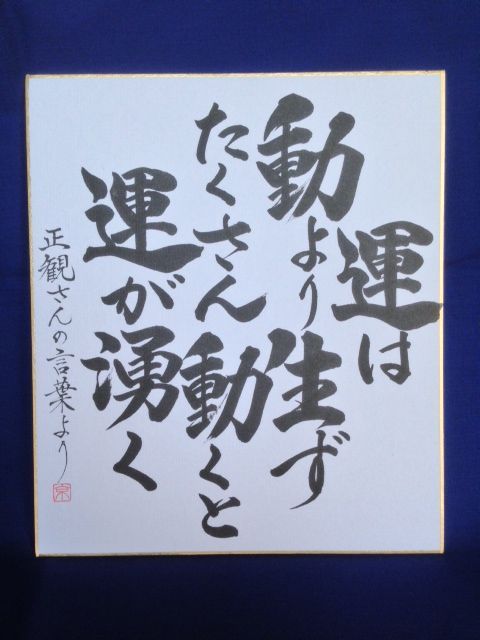 運は
動より生ず
たくさん動くと
運が湧く
正観さんの言葉より
京